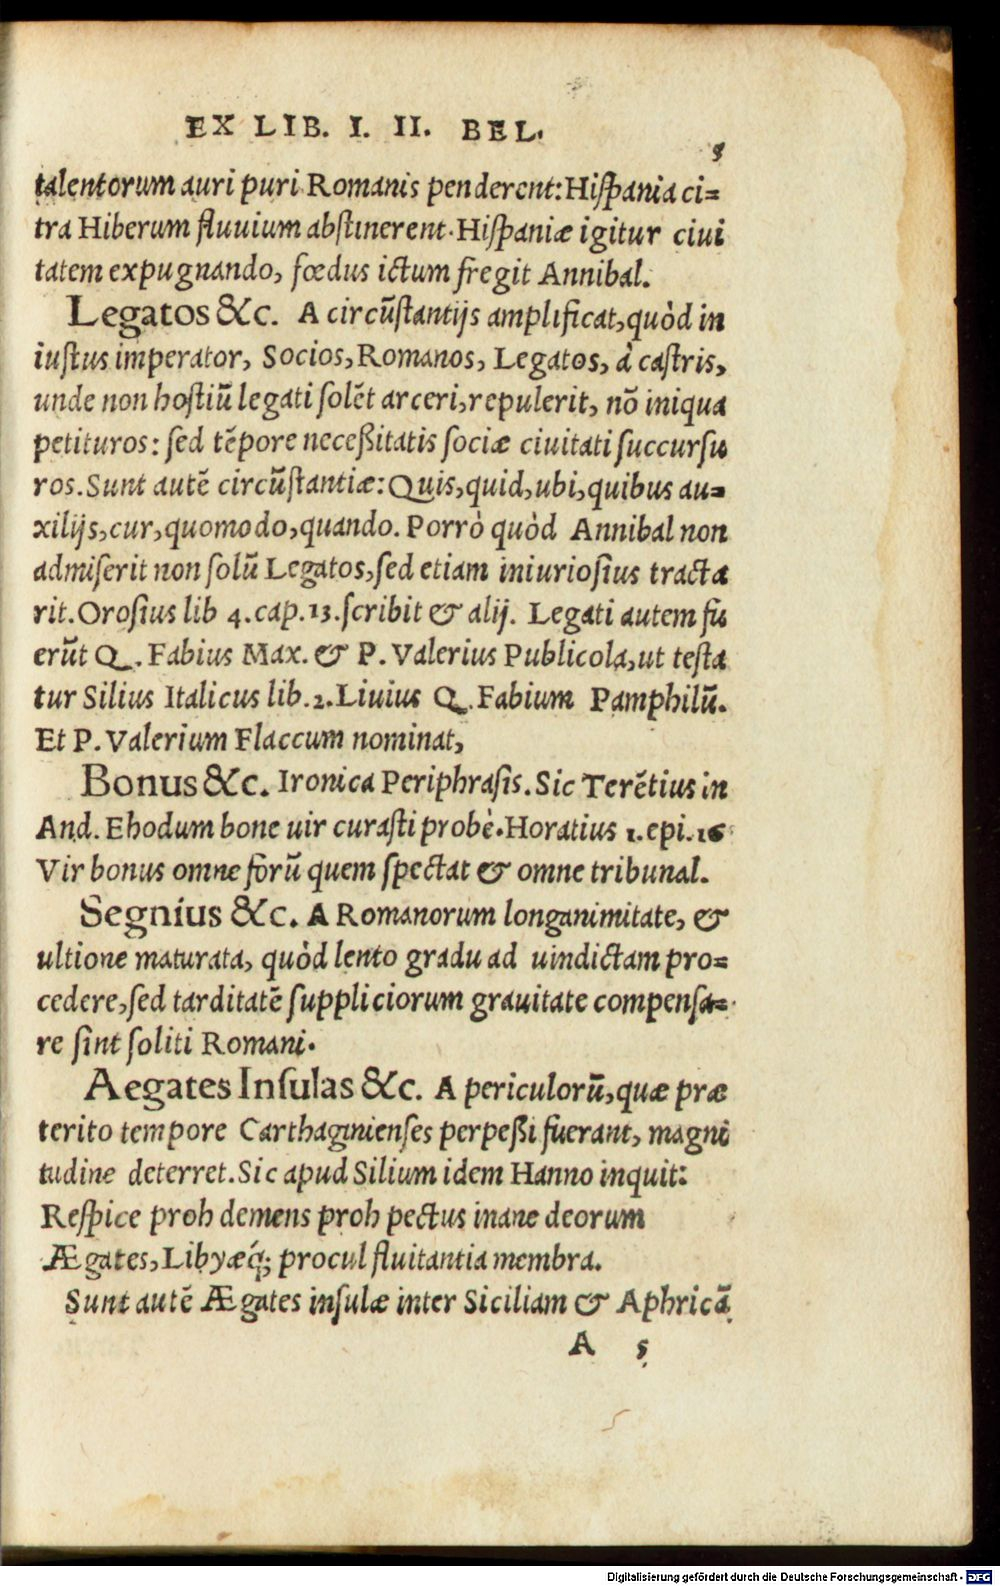 EX LIB. I. II. BEL.
5
talentorum auri puri Romanis penderent: Hiſpania ci=
tra Hiberum fluuium abſtinerent. Hiſpaniæ igitur ciui
tatem expugnando, fœdus ictum fregit Annibal.
Legatos &c. A circũſtantijs amplificat, quòd in
iuſtus imperator, Socios, Romanos, Legatos, à caſtris,
unde non hoſtiũ legati ſolẽt arceri, repulerit, nõ iniqua
petituros: ſed tẽpore neceßitatis ſociæ ciuitati ſuccurſu
ros. Sunt autẽ circũſtantiæ: Quis, quid, ubi, quibus au=
xilijs, cur, quomodo, quando. Porrò quòd Annibal non
admiſerit non ſolũ Legatos, ſed etiam iniurioſius tracta
rit. Oroſius lib 4. cap. 13. ſcribit & alij. Legati autem fu
erũt Q. Fabius Max. & P. Valerius Publicola, ut teſta
tur Silius Italicus lib. 2. Liuius Q. Fabium Pamphilũ.
Et P. Valerium Flaccum nominat,
Bonus &c. Ironica Periphraſis. Sic Terẽtius in
And. Ehodum bone uir curaſti probè. Horatius 1. epi. 16
Vir bonus omne forũ quem ſpectat & omne tribunal.
Segnius &c. A Romanorum longanimitate, &
ultione maturata, quòd lento gradu ad uindictam pro=
cedere, ſed tarditatẽ ſuppliciorum grauitate compenſa=
re ſint ſoliti Romani.
Aegates Inſulas &c. A periculorũ, quæ præ
terito tempore Carthaginienſes perpeßi fuerant, magni
tudine deterret. Sic apud Silium idem Hanno inquit:
Reſpice proh demens proh pectus inane deorum
Ægates, Libyæq́; procul fluitantia membra.
Sunt autẽ Ægates inſulæ inter Siciliam & Aphricã
A 5
Digitalisierung gefördert durch die Deutsche Forschungsgemeinschaft - DFG